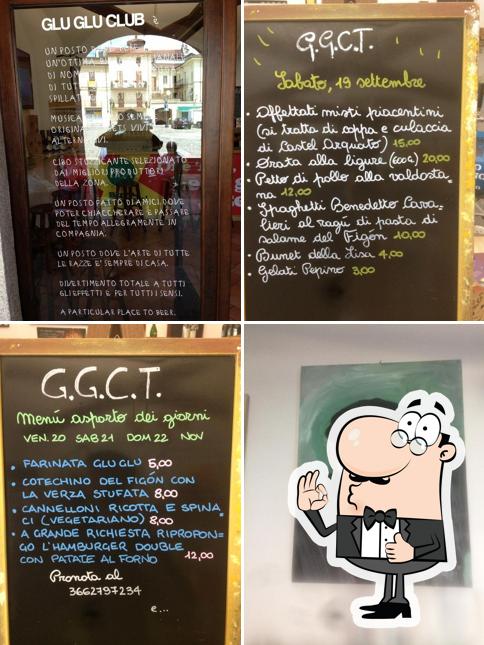 GLU GLU CLUB è
UN POSTO
UN'OTTIMA
DI
DI TUT
SPILLAT
MUSICA
ORIGINA VIVI
ALTER VI.
CIBO STUZZICANTE SELEZIONATO
DAI MIGLIORI PRODUTTORI
DELLA ZONA.
UN POSTO FATTO DI AMICI, DOVE
POTER CHIACCHERARE E PASSARE
DEL TEMPO ALLEGRAMENTE IN
COMPAGNIA.
UN POSTO DOVE L'ARTE DI TUTTE
LE RAZZE E' SEMPRE DI CASA.
DIVERTIMENTO TOTALE A TUTTI
GLI EFFETTI E PER TUTTI I SENSI.
A PARTICULAR PLACE TO BEER.
G.G.C.T.
Sabato, 19 settembre
• Affettati misti piacentini
(si tratta di coppa e culaccia
di Castel Arquato) 15,00
• Orata alla ligure (600g) 20,00
• Petto di pollo alla valdosta=
na 12,00
• Spaghetti Benedetto Cava=
lieri al ragù di pasta di
salame del Figón 10,00
• Bunet della Lisa 4,00
• Gelati Pepino 3,00
G.G.C.T.
Menú asporto dei giorni
VEN. 20 SAB 21 DOM 22 NOV
• FARINATA GLU GLU 5,00
• COTECHINO DEL FIGÓN CON
LA VERZA STUFATA 8,00
• CANNELLONI RICOTTA E SPINA
CI (VEGETARIANO) 8,00
• A GRANDE RICHIESTA RIPROPON=
GO L'HAMBURGER DOUBLE
CON PATATE AL FORNO 12,00
Prenota al
3662797234
e...